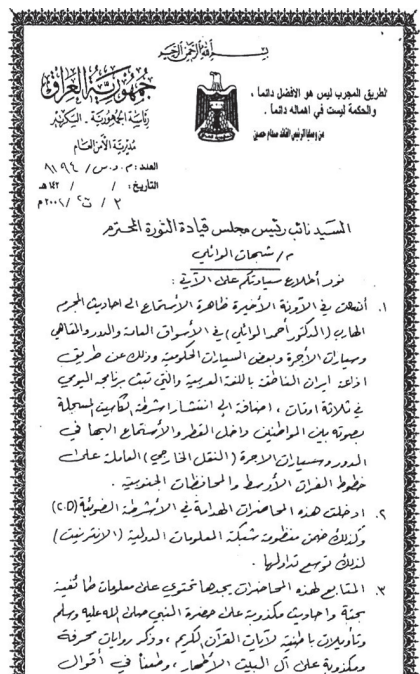 بسم الله الرحمن الرحيم
جمهورية العراق
رئاسة الجمهورية - السكرتير
مديرية الأمن العام
العدد : م . د . س / ٨١٩٤
التاريخ : / / ١٤٢ هـ
٣ / ت٢ / ٢٠٠١ م
الطريق المجرب ليس هو الافضل دائماً ،
والحكمة ليست في اهماله دائماً .
من وصايا الرئيس القائد صدام حسين
السيد نائب رئيس مجلس قيادة الثورة المحترم
م / شبهات الوائلي
نود أطلاع سيادتكم على الآتي :
١. أنتهت في الآونة الأخيرة ظاهرة الأستماع الى احاديث المجرم
الهارب (الدكتور أحمد الوائلي) في الأسواق العامة والدور والمقاهي
وسيارات الأجرة وبعض السيارات الحكومية وذلك عن طريق
اذاعة ايران الناطقة باللغة العربية والتي تبث برنامجه اليومي
في ثلاثة اوقات ، اضافة الى انتشار اشرطة الكاسيت المسجلة
بصوته بين المواطنين داخل القطر والأستماع اليها في
الدور وسيارات الاجرة (النقل الخارجي) العاملة على
خطوط الفرات الأوسط والمحافظات الجنوبية .
٢. ادخلت هذه المحاضرات الهدامة في الأشرطة الضوئية (C.D)
وكذلك ضمن منظومة شبكة المعلومات الدولية (الانترنيت)
لذلك توسع تداولها .
٣. المتابع لهذه المحاضرات يجدها تحتوي على معلومات طائفية
بحتة واحاديث مكذوبة على حضرة النبي صلى الله عليه وسلم
وتأويلات باطنية لآيات القرآن الكريم ، وذكر روايات محرفة
ومكذوبة على آل البيت الأطهار ، وطعناً في أقوال